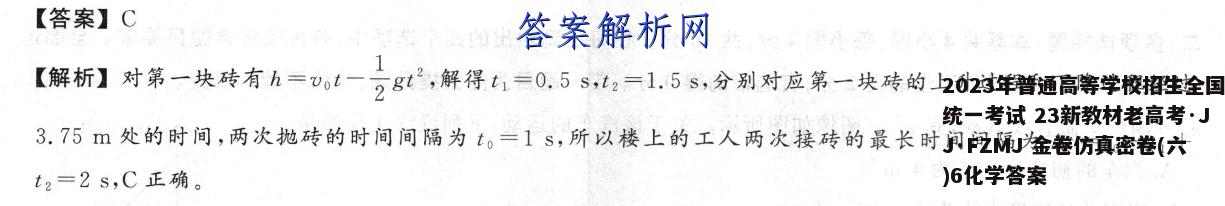 【答案】C
答案解析网
【解析】对第一块砖有h=v₀t-½gt²,解得t₁=0.5 s,t₂=1.5 s,分别对应第一块砖的上
3.75 m 处的时间,两次抛砖的时间间隔为 t₀=1 s,所以楼上的工人两次接砖的最长时间间隔为
t₂=2 s,C 正确。
2023年普通高等学校招生全国
统一考试 23新教材老高考·J
J·FZMJ 金卷仿真密卷(六
)6化学答案